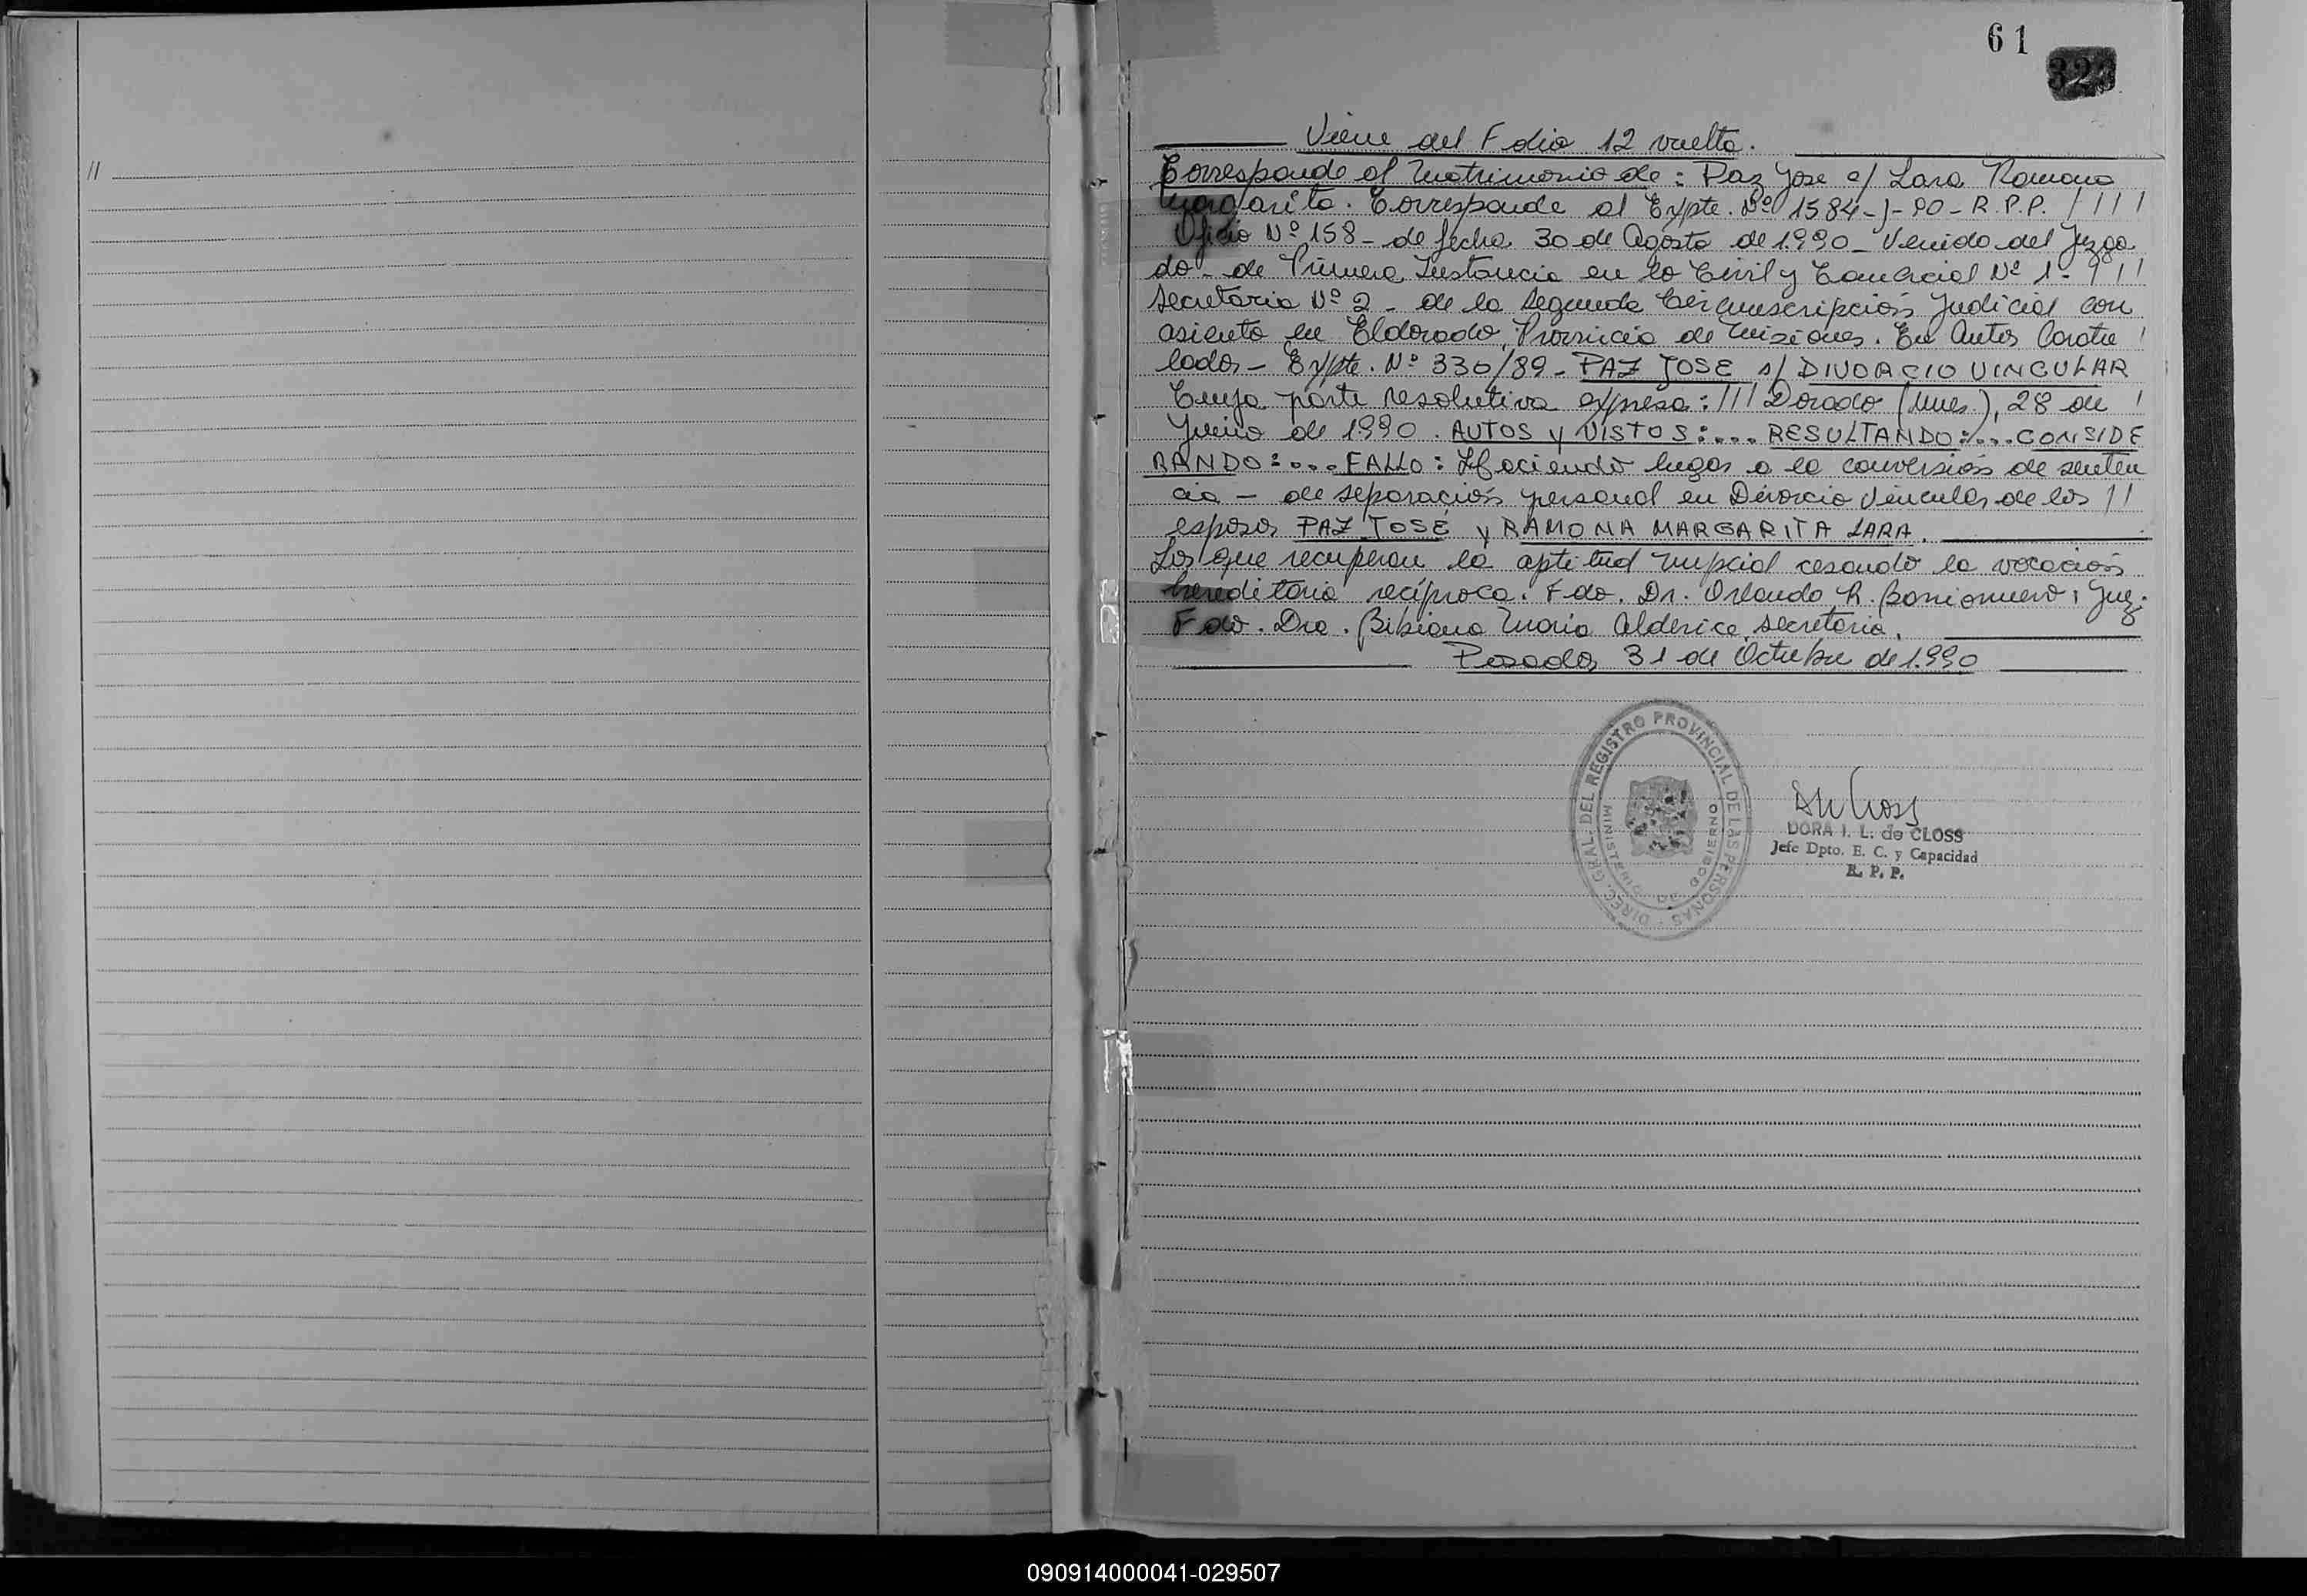 61
320
//
Viene del Folio 12 vuelta.
Corresponde al Matrimonio de: Paz Jose c/ Lara Ramona
Margarita. Corresponde al Expte. Nº 1584-J-90-R.P.P. ////
Oficio Nº 158- de fecha 30 de Agosto de 1.990_ Venido del Juzga
do- de Primera Instancia en lo Civil y Comercial Nº 1- ///
Secretaria Nº 2 - de la Segunda Circunscripción Judicial con
asiento en Eldorado, Provincia de Misiones. En Autos Caratu /
lados- Expte. Nº 330/89- PAZ JOSE s/ DIVORCIO VINCULAR
Cuya parte resolutiva expresa: /// Dorado (Mnes.), 28 de /
Junio de 1990. AUTOS Y VISTOS:.... RESULTANDO:....CONSIDE
RANDO:....FALLO: Haciendo lugar a la conversión de senten
cia - de separación personal en Divorcio Vincular de los //
esposos PAZ JOSÉ y RAMONA MARGARITA LARA.
Los que recuperan la aptitud nupcial cesando la vocación
hereditaria recíproca. Fdo. Dr. Orlando R. Barrionuevo, Juez.
Fdo. Dra. Bibiana Maria Alderice, secretaria.
Posadas 31 de Octubre de 1.990
DIREC. GRAL. DEL REGISTRO PROVINCIAL DE LAS PERSONAS -
MINISTERIO DE GOBIERNO
DORA I. L. de CLOSS
Jefe Dpto. E. C. y Capacidad
R. P. P.
090914000041-029507